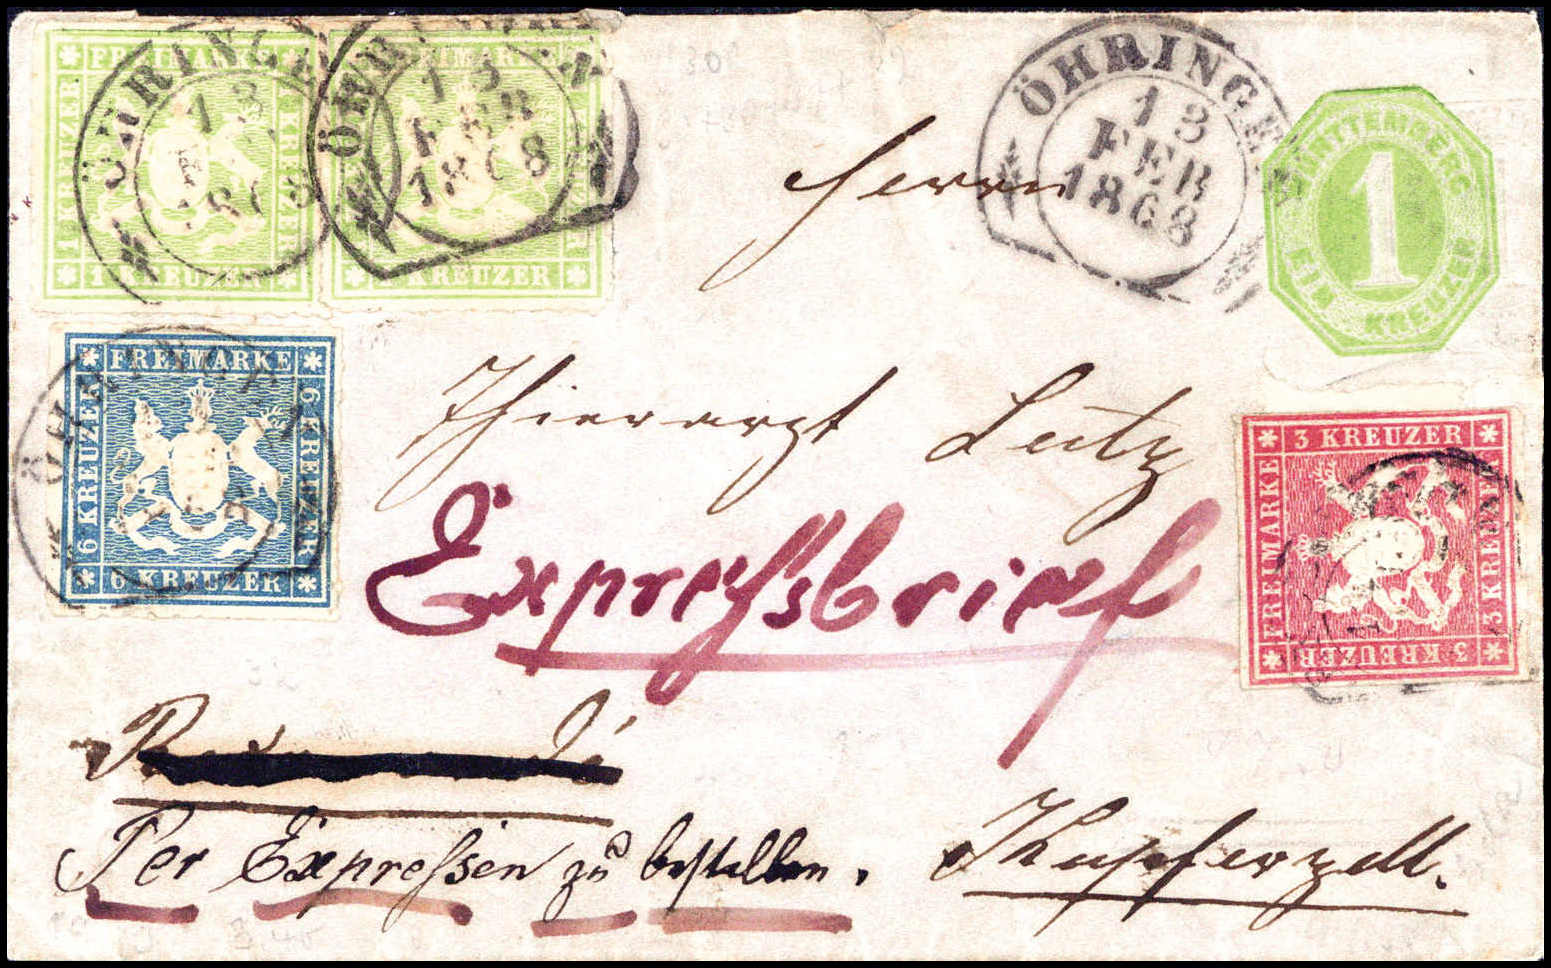 FREIMARKE
1 KREUZER
1 KREUZER
1 KREUZER
ÖHRINGEN
13
FEB
1868
FREIMARKE
KREUZER
KREUZER
ÖHRINGEN
13
FEB
1868
ÖHRINGEN
13
FEB
1868
WÜRTTEMBERG
1
EIN KREUZER
Herrn
FREIMARKE
6 KREUZER
6 KREUZER
6 KREUZER
ÖHRINGEN
Thierarzt Lutz
3 KREUZER
FREIMARKE
3 KREUZER
3 KREUZER
Expreßbrief
Per Expreßen zu bestellen.
Kupferzell.